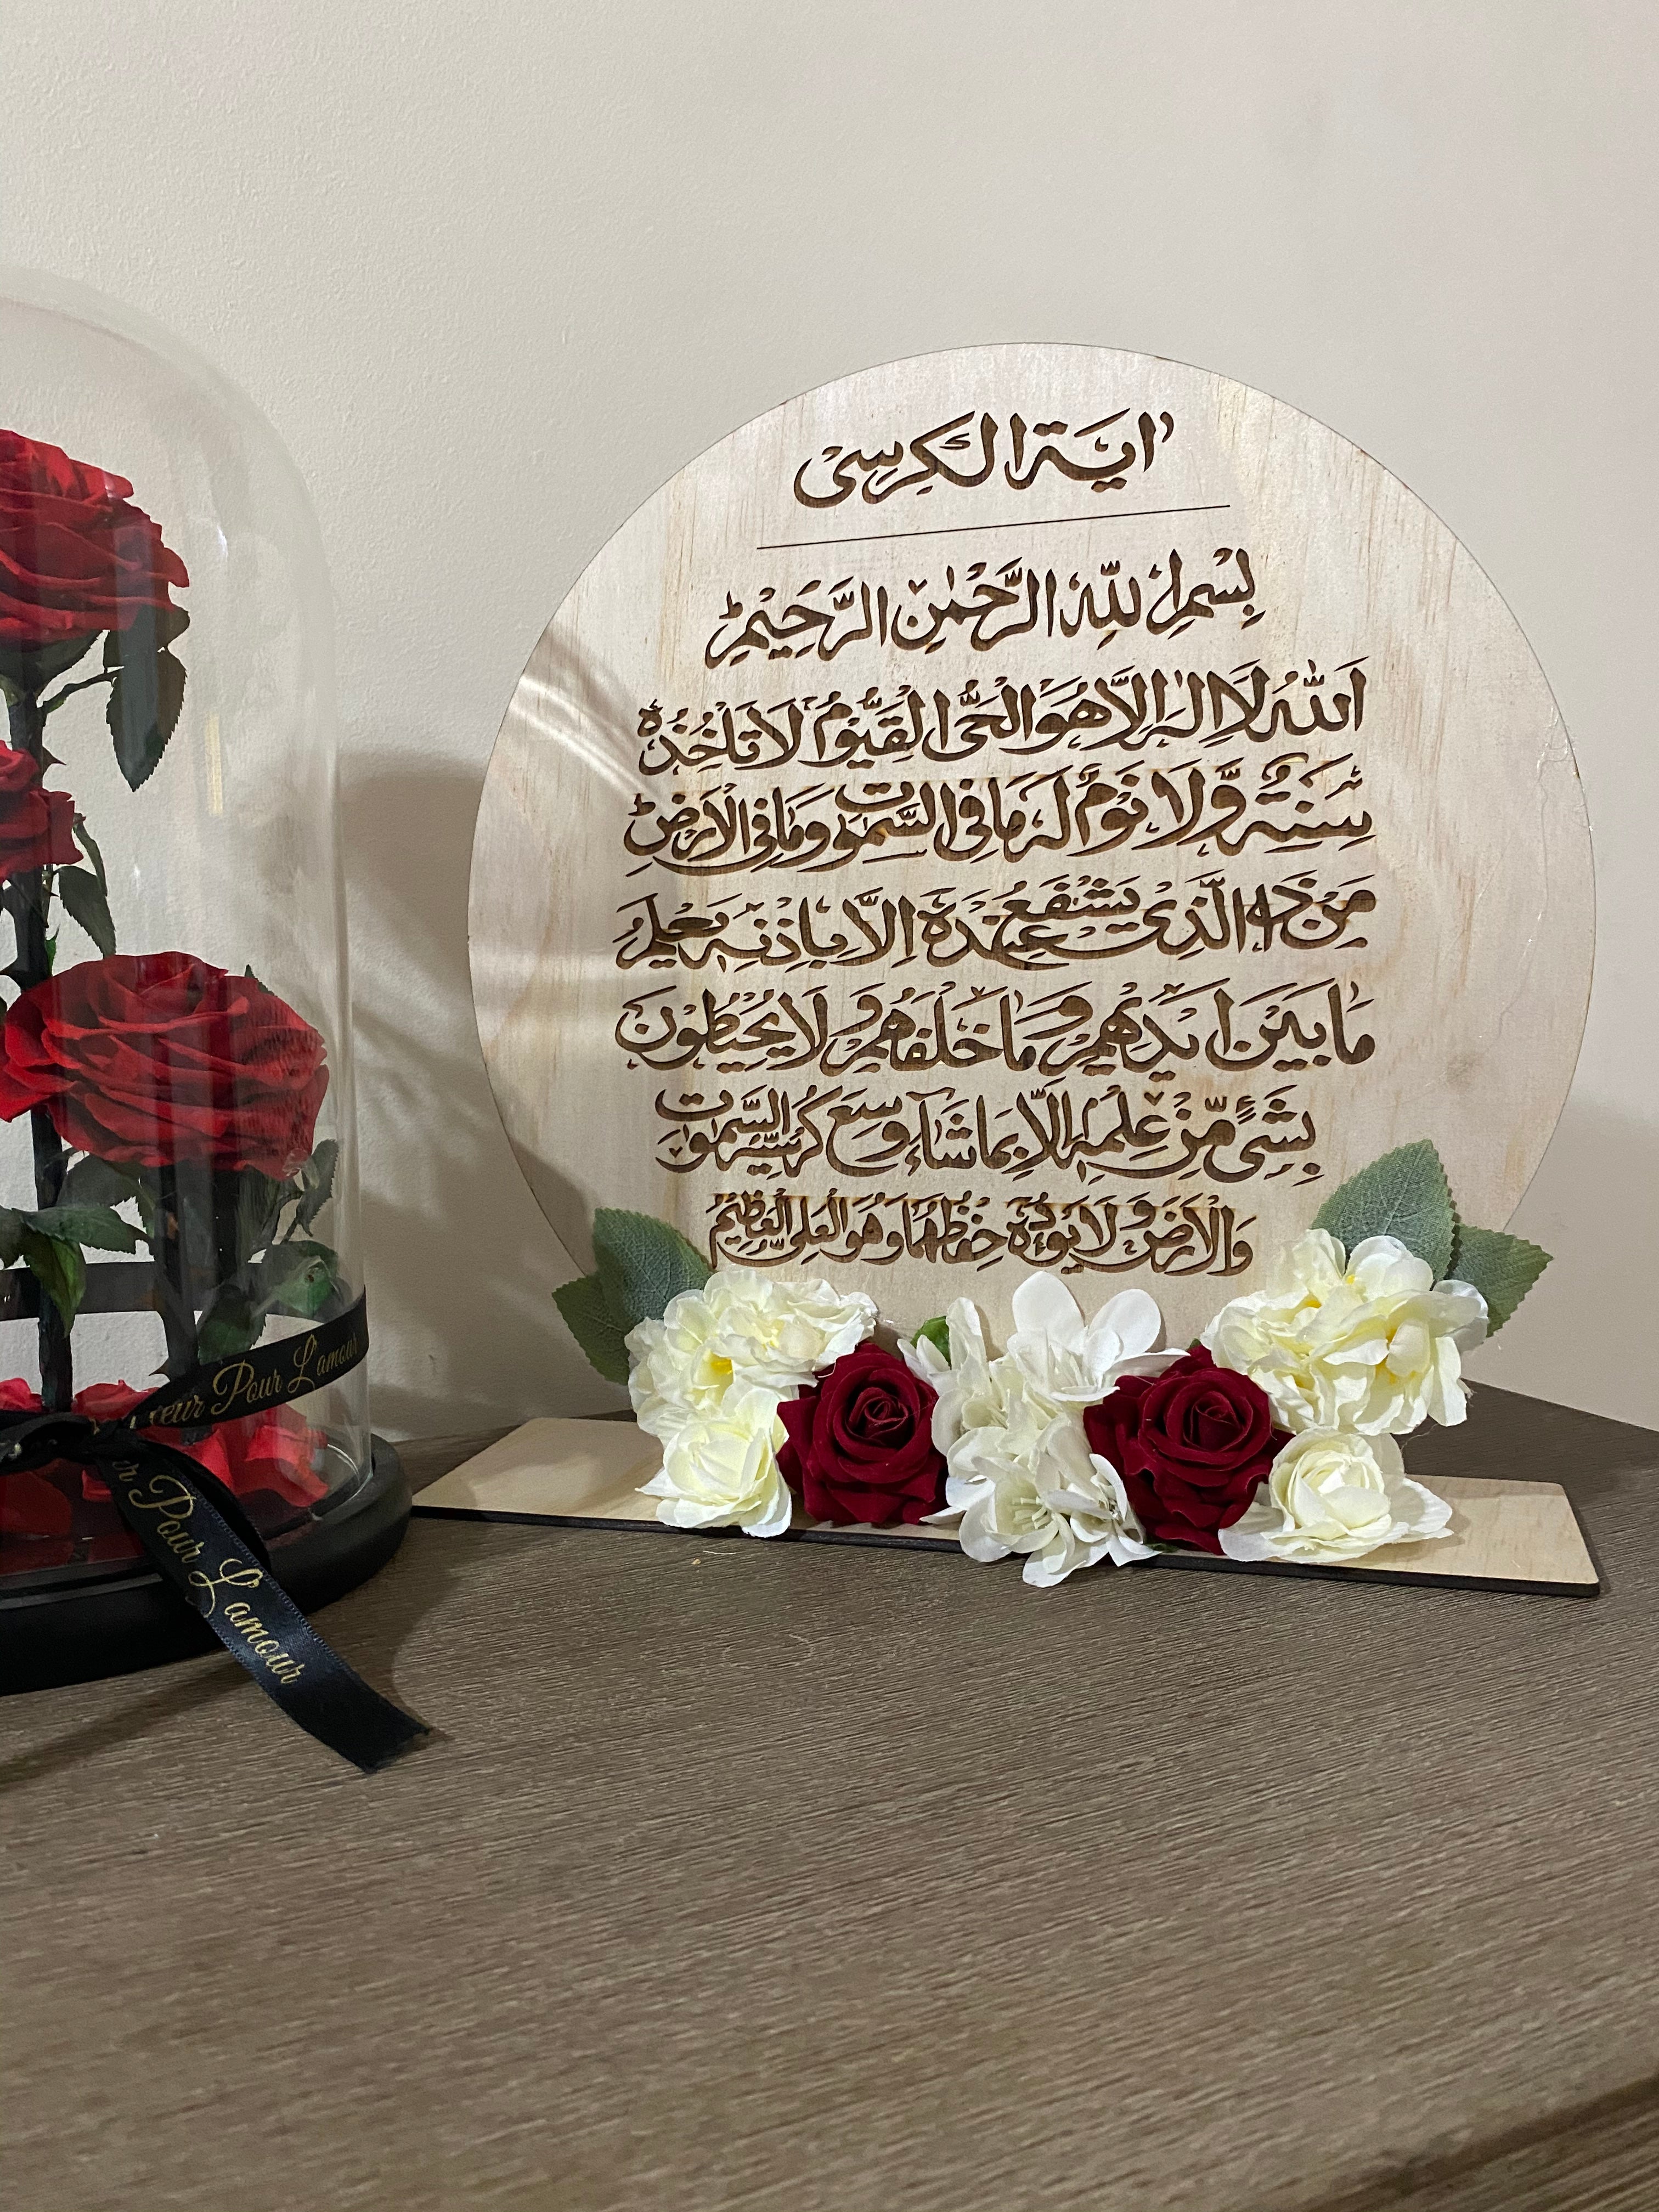 اية الكرسى
بِسْمِ اللهِ الرَّحْمٰنِ الرَّحِيْمِ
اَللهُ لَا اِلٰهَ اِلَّا هُوَ الْحَىُّ الْقَيُّوْمُ لَا تَاْخُذُهٗ
سِنَةٌ وَّلَا نَوْمٌ لَهٗ مَا فِى السَّمٰوٰتِ وَمَا فِى الْاَرْضِ
مَنْ ذَا الَّذِىْ يَشْفَعُ عِنْدَهٗ اِلَّا بِاِذْنِهٖ يَعْلَمُ
مَا بَيْنَ اَيْدِيْهِمْ وَمَا خَلْفَهُمْ وَلَا يُحِيْطُوْنَ
بِشَىْءٍ مِّنْ عِلْمِهٖ اِلَّا بِمَا شَآءَ وَسِعَ كُرْسِيُّهُ السَّمٰوٰتِ
وَالْاَرْضَ وَلَا يَئُوْدُهٗ حِفْظُهُمَا وَهُوَ الْعَلِىُّ الْعَظِيْمُ
Pour L'amour
Pour L'amour